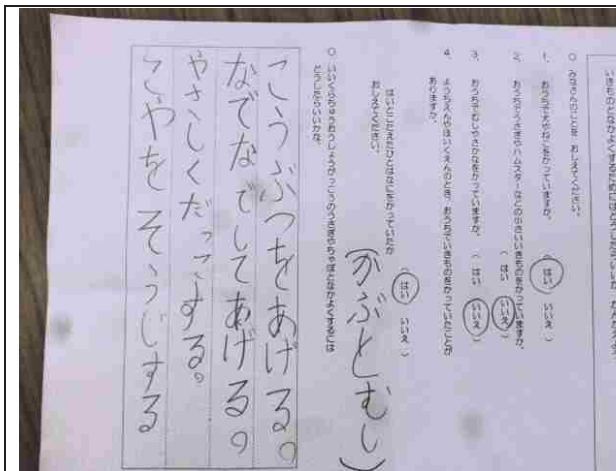 いきものとなかよくするためにはどうしたらいいか
○ みなさんのことを おしえてください。
1. おうちで犬やねこをかっていますか。
（ はい いいえ ）
2. おうちでうさぎやハムスターなどの小さいいきものをかっていますか。
（ はい いいえ ）
3. おうちでむしやさかなをかっていますか。
（ はい いいえ ）
4. ようちえんやほいくえんのとき、おうちでいきものをかっていたことが
ありますか。
（ はい いいえ ）
はいとこたえたひとはなにをかっていたか
おしえてください。
（かぶとむし）
○ いいくらちゅうおうしょうがっこうのうさぎやちゃぼとなかよくするには
どうしたらいいかな。
こうぶつをあげる。
なでなでしてあげる。
やさしくだっこする。
こやをそうじする